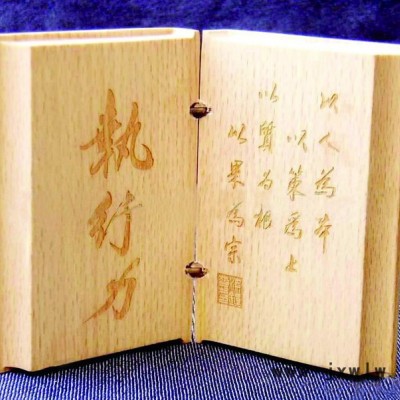 執行力
以人為本
以策為上
以質為根
以果為宗
www.jxwlw